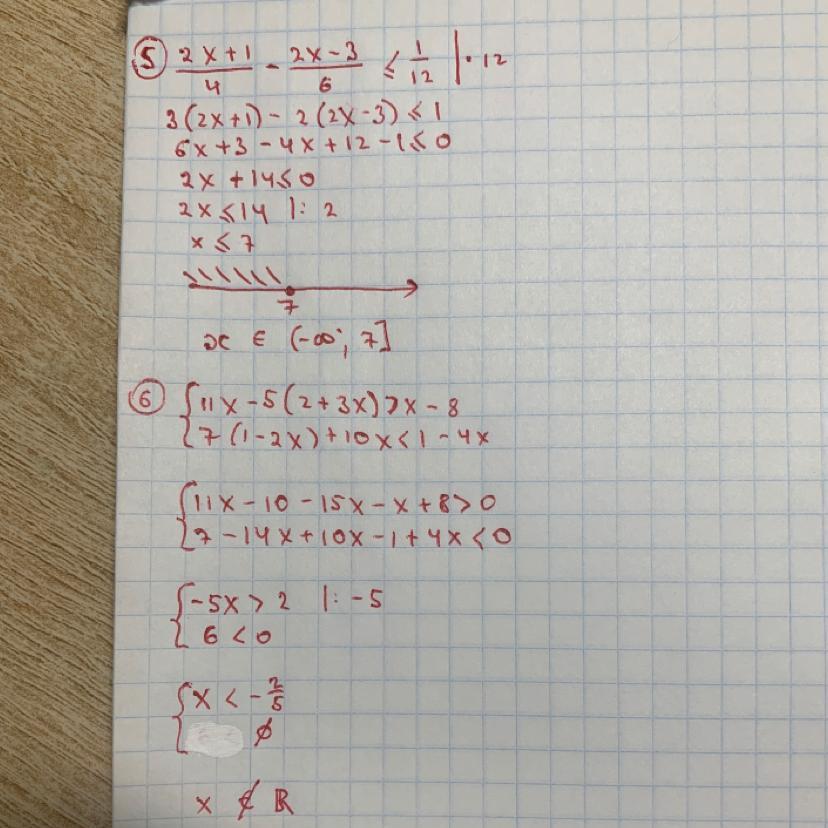 5 (2x+1)/4 - (2x-3)/6 ≤ 1/12 | · 12
3(2x+1) - 2(2x-3) ≤ 1
6x+3 - 4x+12 -1≤0
2x +14≤0
2x ≤14 |: 2
x ≤ 7
7
x ∈ (-∞; 7]
6 { 11x -5(2+3x)>x - 8
7 (1-2x)+10x<1-4x
{ 11x-10-15x-x+8>0
7-14x+10x-1+4x<0
{ -5x > 2 |: -5
6 < 0
{ x < -2/5
∅
x ∉ ℝ